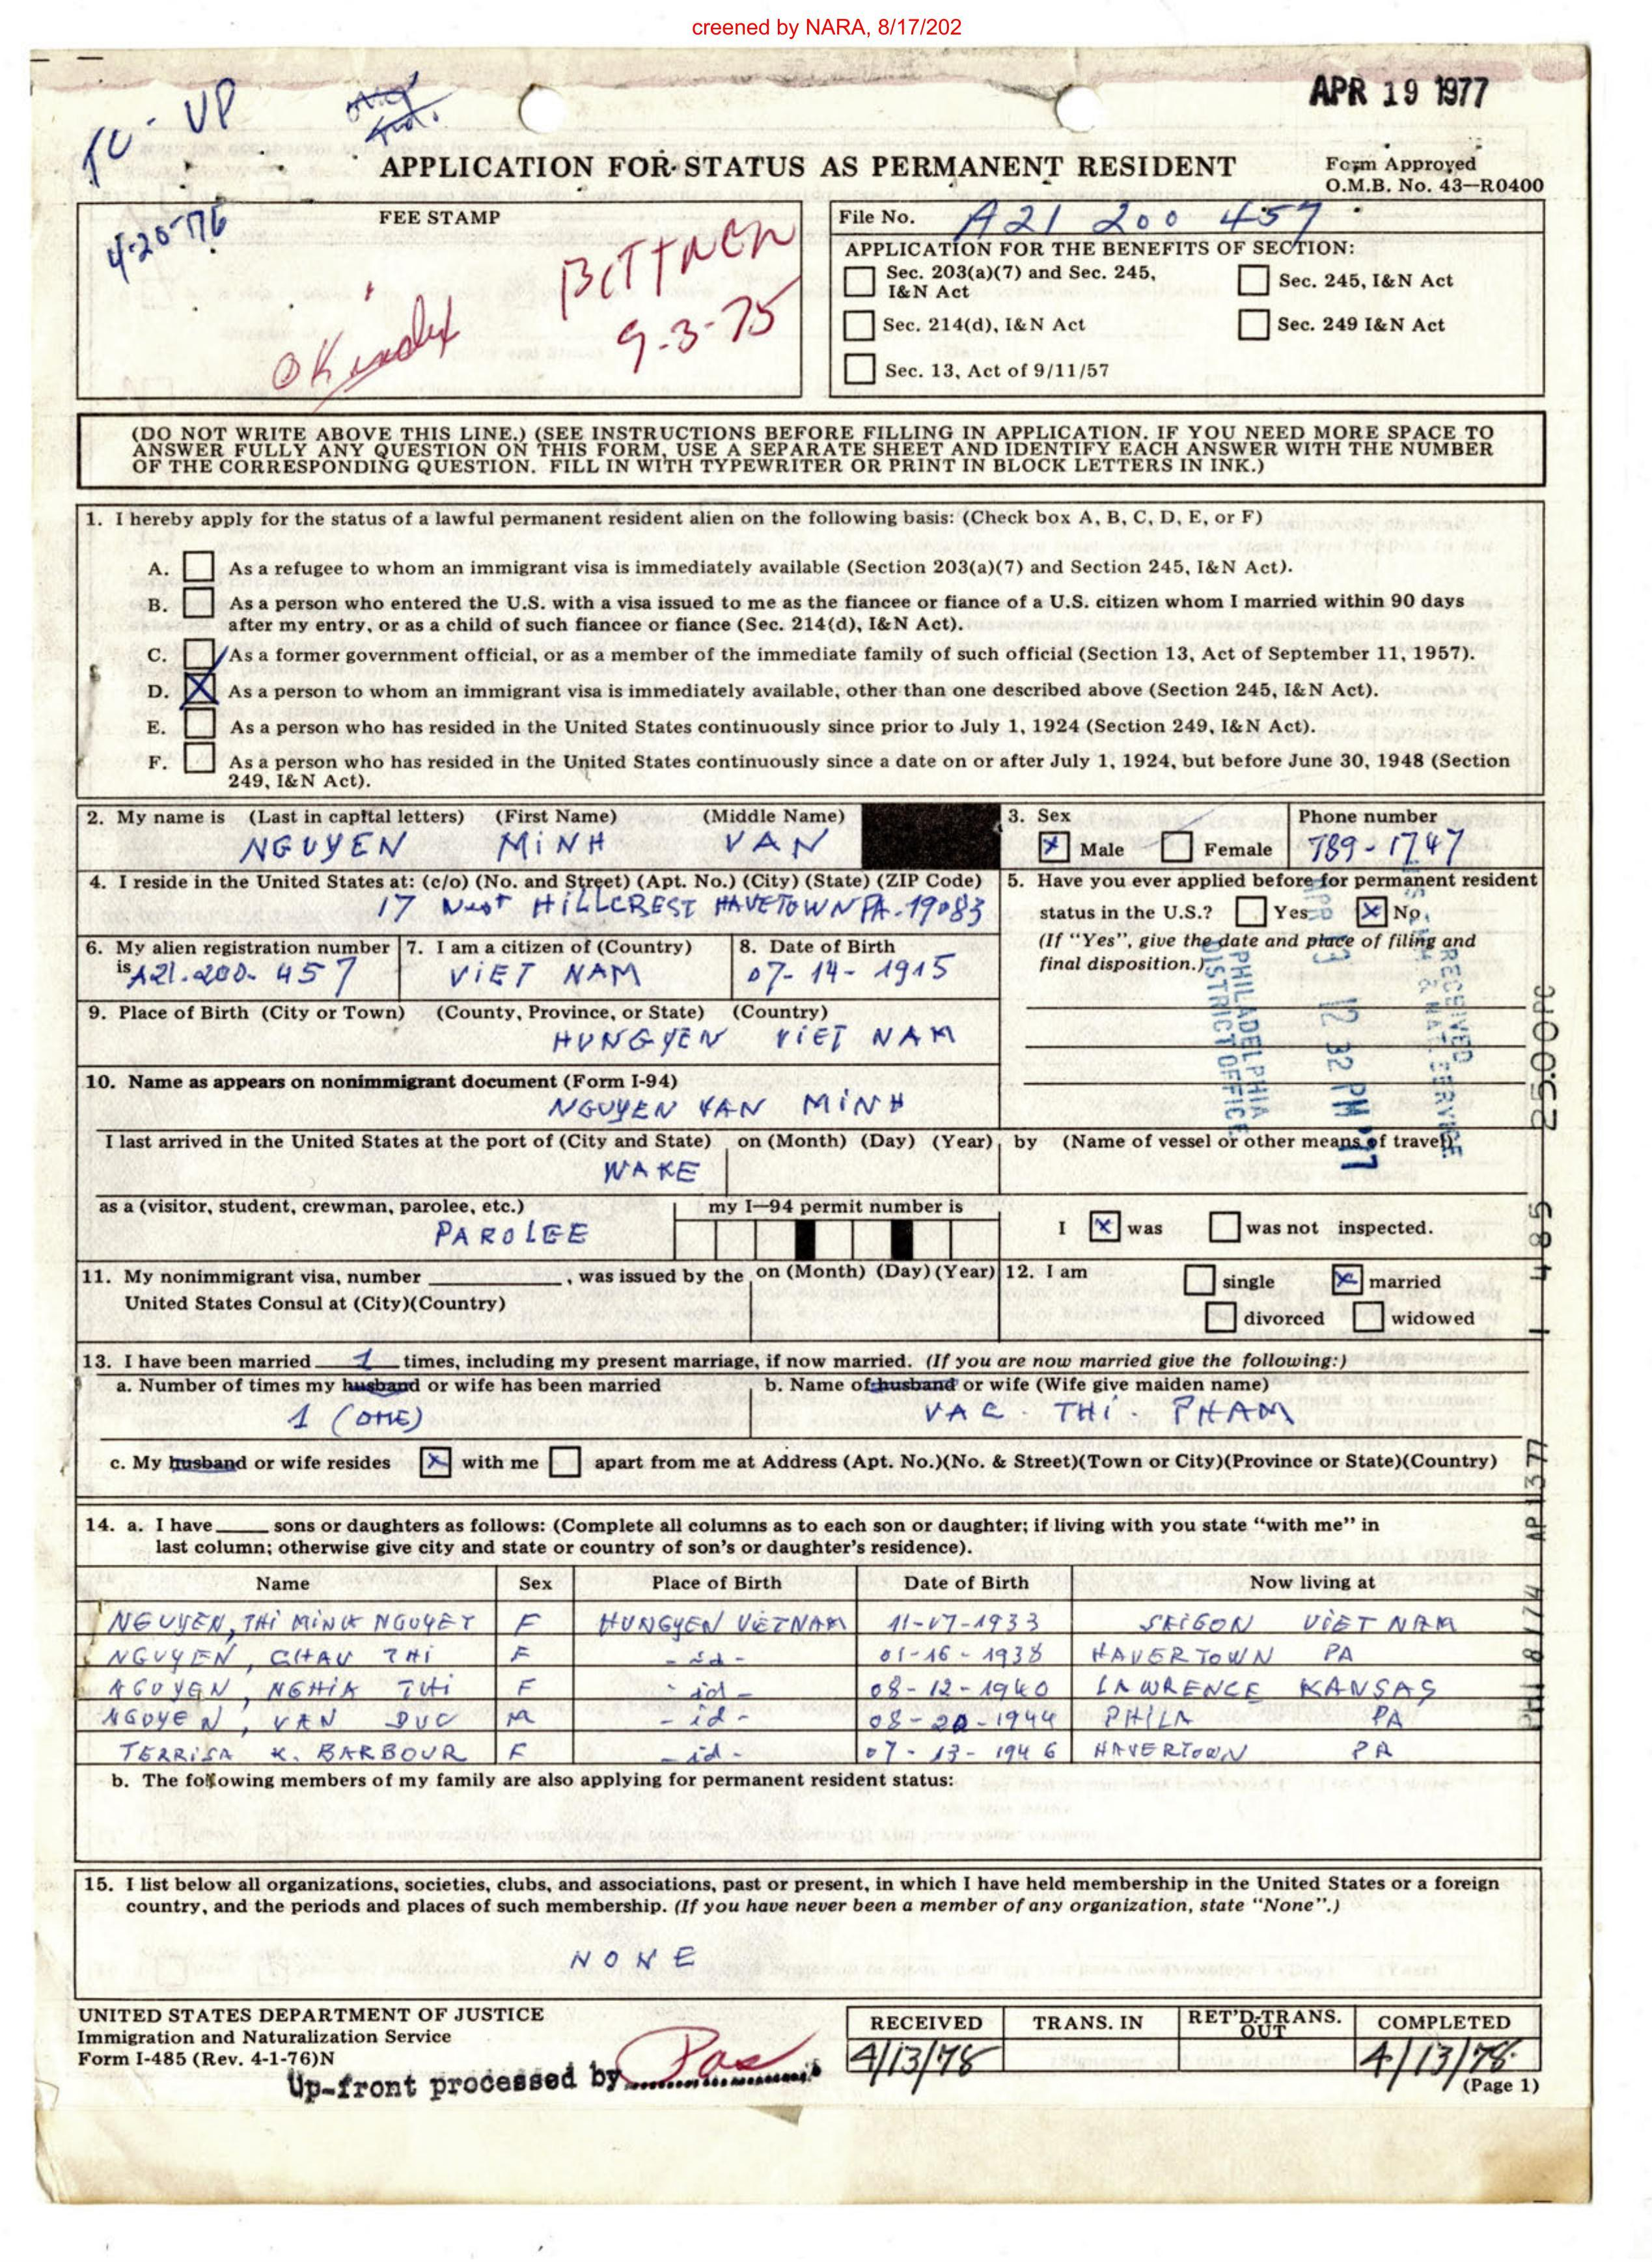 creened by NARA, 8/17/202
APR 19 1977
APPLICATION FOR STATUS AS PERMANENT RESIDENT
Form Approved
O.M.B. No. 43-R0400
4-20-76
FEE STAMP
OK index
BITTNER
9-3-75
File No. A21 200 457
APPLICATION FOR THE BENEFITS OF SECTION:
Sec. 203(a)(7) and Sec. 245, I&N Act
Sec. 245, I&N Act
Sec. 214(d), I&N Act
Sec. 249 I&N Act
Sec. 13, Act of 9/11/57
(DO NOT WRITE ABOVE THIS LINE.) (SEE INSTRUCTIONS BEFORE FILLING IN APPLICATION. IF YOU NEED MORE SPACE TO
ANSWER FULLY ANY QUESTION ON THIS FORM, USE A SEPARATE SHEET AND IDENTIFY EACH ANSWER WITH THE NUMBER
OF THE CORRESPONDING QUESTION. FILL IN WITH TYPEWRITER OR PRINT IN BLOCK LETTERS IN INK.)
1. I hereby apply for the status of a lawful permanent resident alien on the following basis: (Check box A, B, C, D, E, or F)
A. As a refugee to whom an immigrant visa is immediately available (Section 203(a)(7) and Section 245, I&N Act).
B. As a person who entered the U.S. with a visa issued to me as the fiancee or fiance of a U.S. citizen whom I married within 90 days
after my entry, or as a child of such fiancee or fiance (Sec. 214(d), I&N Act).
C. As a former government official, or as a member of the immediate family of such official (Section 13, Act of September 11, 1957).
D. X As a person to whom an immigrant visa is immediately available, other than one described above (Section 245, I&N Act).
E. As a person who has resided in the United States continuously since prior to July 1, 1924 (Section 249, I&N Act).
F. As a person who has resided in the United States continuously since a date on or after July 1, 1924, but before June 30, 1948 (Section
249, I&N Act).
2. My name is (Last in capital letters) (First Name) (Middle Name)
NGUYEN MINH VAN
3. Sex
X Male Female
Phone number
789-1747
4. I reside in the United States at: (c/o) (No. and Street) (Apt. No.) (City) (State) (ZIP Code)
17 West HILLCREST HAVETOWN PA. 19083
5. Have you ever applied before for permanent resident
status in the U.S.? Yes X No
(If "Yes", give the date and place of filing and
final disposition.)
RECEIVED
PHILADELPHIA
DISTRICT OFFICE
6. My alien registration number
is A21.200-457
7. I am a citizen of (Country)
VIET NAM
8. Date of Birth
07-14-1915
9. Place of Birth (City or Town) (County, Province, or State) (Country)
HUNGYEN VIET NAM
10. Name as appears on nonimmigrant document (Form I-94)
NGUYEN VAN MINH
I last arrived in the United States at the port of (City and State) on (Month) (Day) (Year) by (Name of vessel or other means of travel)
WAKE
as a (visitor, student, crewman, parolee, etc.)
PAROLEE
my I-94 permit number is
I X was was not inspected.
11. My nonimmigrant visa, number ______, was issued by the on (Month) (Day) (Year)
United States Consul at (City)(Country)
12. I am single X married
divorced widowed
13. I have been married 1 times, including my present marriage, if now married. (If you are now married give the following:)
a. Number of times my husband or wife has been married
1 (ONE)
b. Name of husband or wife (Wife give maiden name)
VAC. THI. PHAM
c. My husband or wife resides X with me apart from me at Address (Apt. No.)(No. & Street)(Town or City)(Province or State)(Country)
14. a. I have ____ sons or daughters as follows: (Complete all columns as to each son or daughter; if living with you state "with me" in
last column; otherwise give city and state or country of son's or daughter's residence).
Name Sex Place of Birth Date of Birth Now living at
NGUYEN, THI MINH NGUYET F HUNGYEN VIETNAM 11-07-1933 SAIGON VIET NAM
NGUYEN, CHAU THI F -id- 01-16-1938 HAVERTOWN PA
NGUYEN, NGHIA THI F -id- 08-12-1940 LAWRENCE KANSAS
NGUYEN, VAN DUC M -id- 08-20-1944 PHILA PA
TERRISA K. BARBOUR F -id- 07-13-1946 HAVERTOWN PA
b. The following members of my family are also applying for permanent resident status:
15. I list below all organizations, societies, clubs, and associations, past or present, in which I have held membership in the United States or a foreign
country, and the periods and places of such membership. (If you have never been a member of any organization, state "None".)
NONE
UNITED STATES DEPARTMENT OF JUSTICE
Immigration and Naturalization Service
Form I-485 (Rev. 4-1-76)N
Up-front processed by
RECEIVED TRANS. IN RET'D-TRANS. OUT COMPLETED
4/13/78 4/13/78
(Page 1)